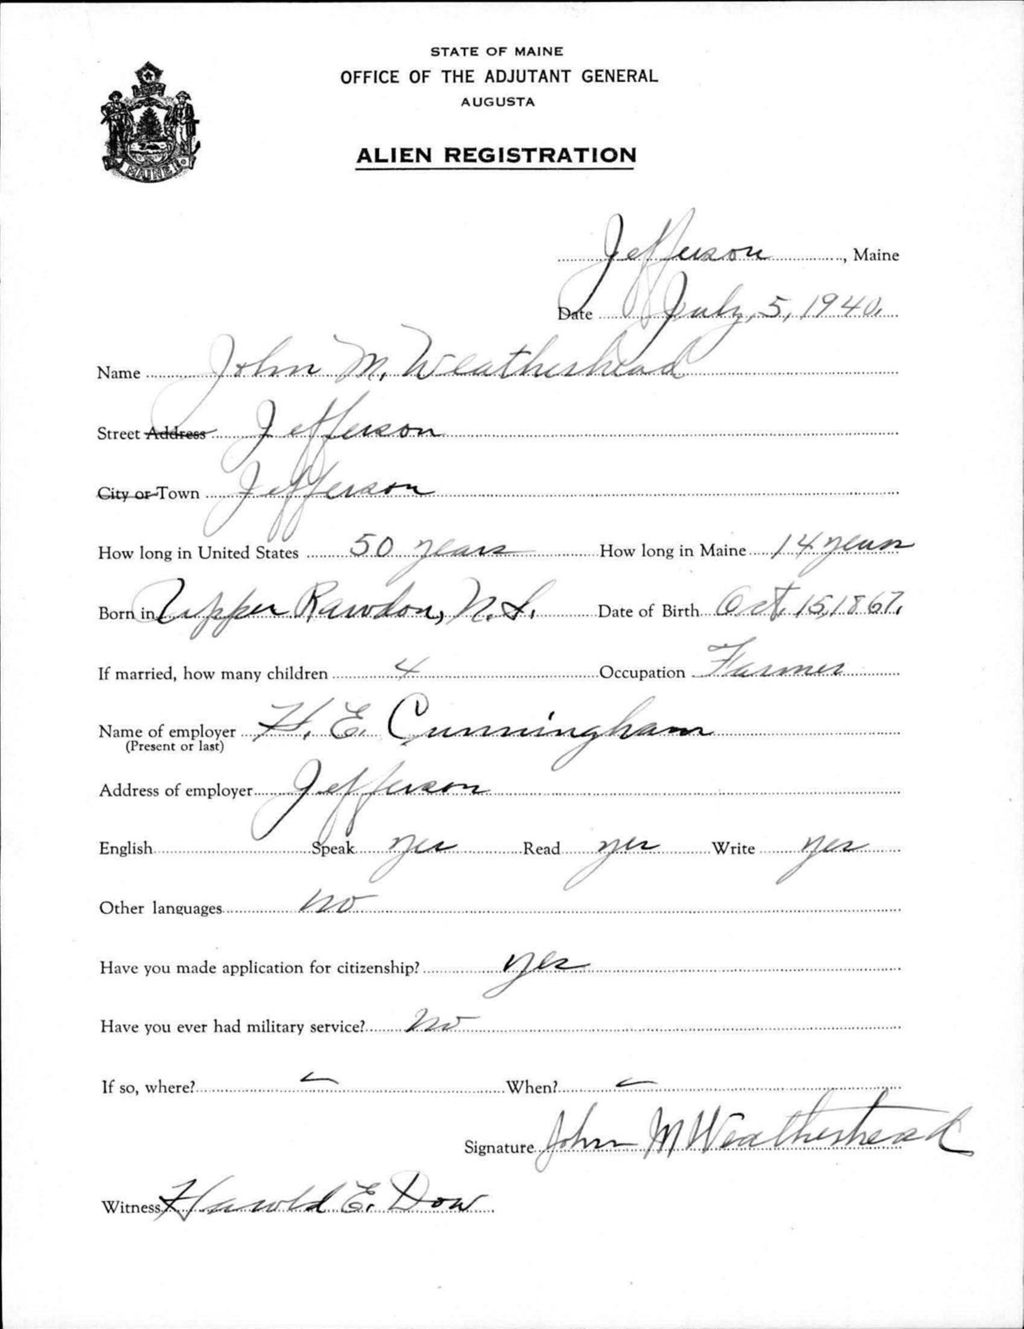 STATE OF MAINE
OFFICE OF THE ADJUTANT GENERAL
AUGUSTA
ALIEN REGISTRATION
MAINE
Jefferson, Maine
Date July, 5, 1940.
Name John M. Weatherhead
Street Address Jefferson
City or Town Jefferson
How long in United States 50 years How long in Maine 14 years
Born in Upper Rawdon, N.S. Date of Birth Oct. 15, 1867.
If married, how many children 4 Occupation Farmer
Name of employer H. E. Cunningham
(Present or last)
Address of employer Jefferson
English Speak yes Read yes Write yes
Other languages no
Have you made application for citizenship? yes
Have you ever had military service? No
If so, where? When?
Signature John M Weatherhead
Witness Harold E. Dow